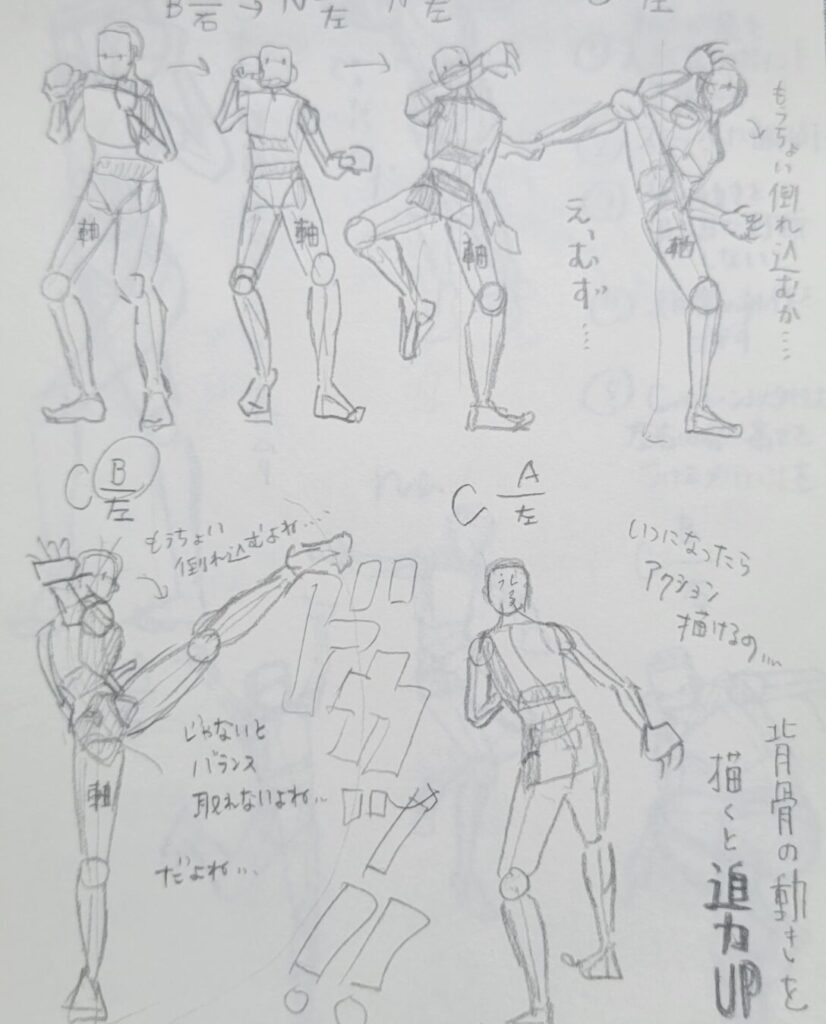 B/右 → N/左 N/左 C/左
軸
軸
軸
軸
え、むず…
もうちょい倒れ込むか……
C B/左
もうちょい
倒れ込むよね…
じゃないと
バランス
取れないよね…
だよね…
軸
C A/左
うしろ
いつになったら
アクション
描けるの…
背骨の動きを
描くと迫力UP